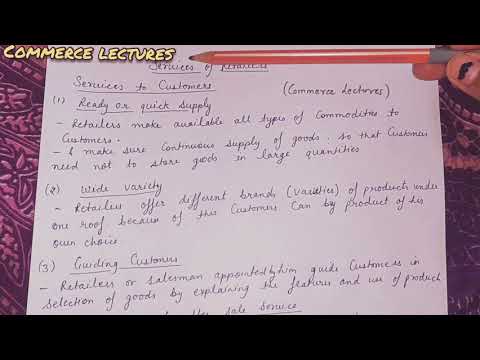 COMMERCE LECTURES
Services of Retailers
Services to Customers
(Commerce Lectures)
(1) Ready or quick Supply
- Retailers make available all types of Commodities to
Customers.
- & make sure Continuous Supply of goods. so that Customers
need not to store goods in large quantities
(2) Wide Variety
- Retailers offer different brands (varieties) of products under
one roof, because of this Customers Can by product of his
own choice
(3) Guiding Customers
- Retailers or salesman appointed by him guide Customers in
selection of goods by explaining the features and use of product
sale Service